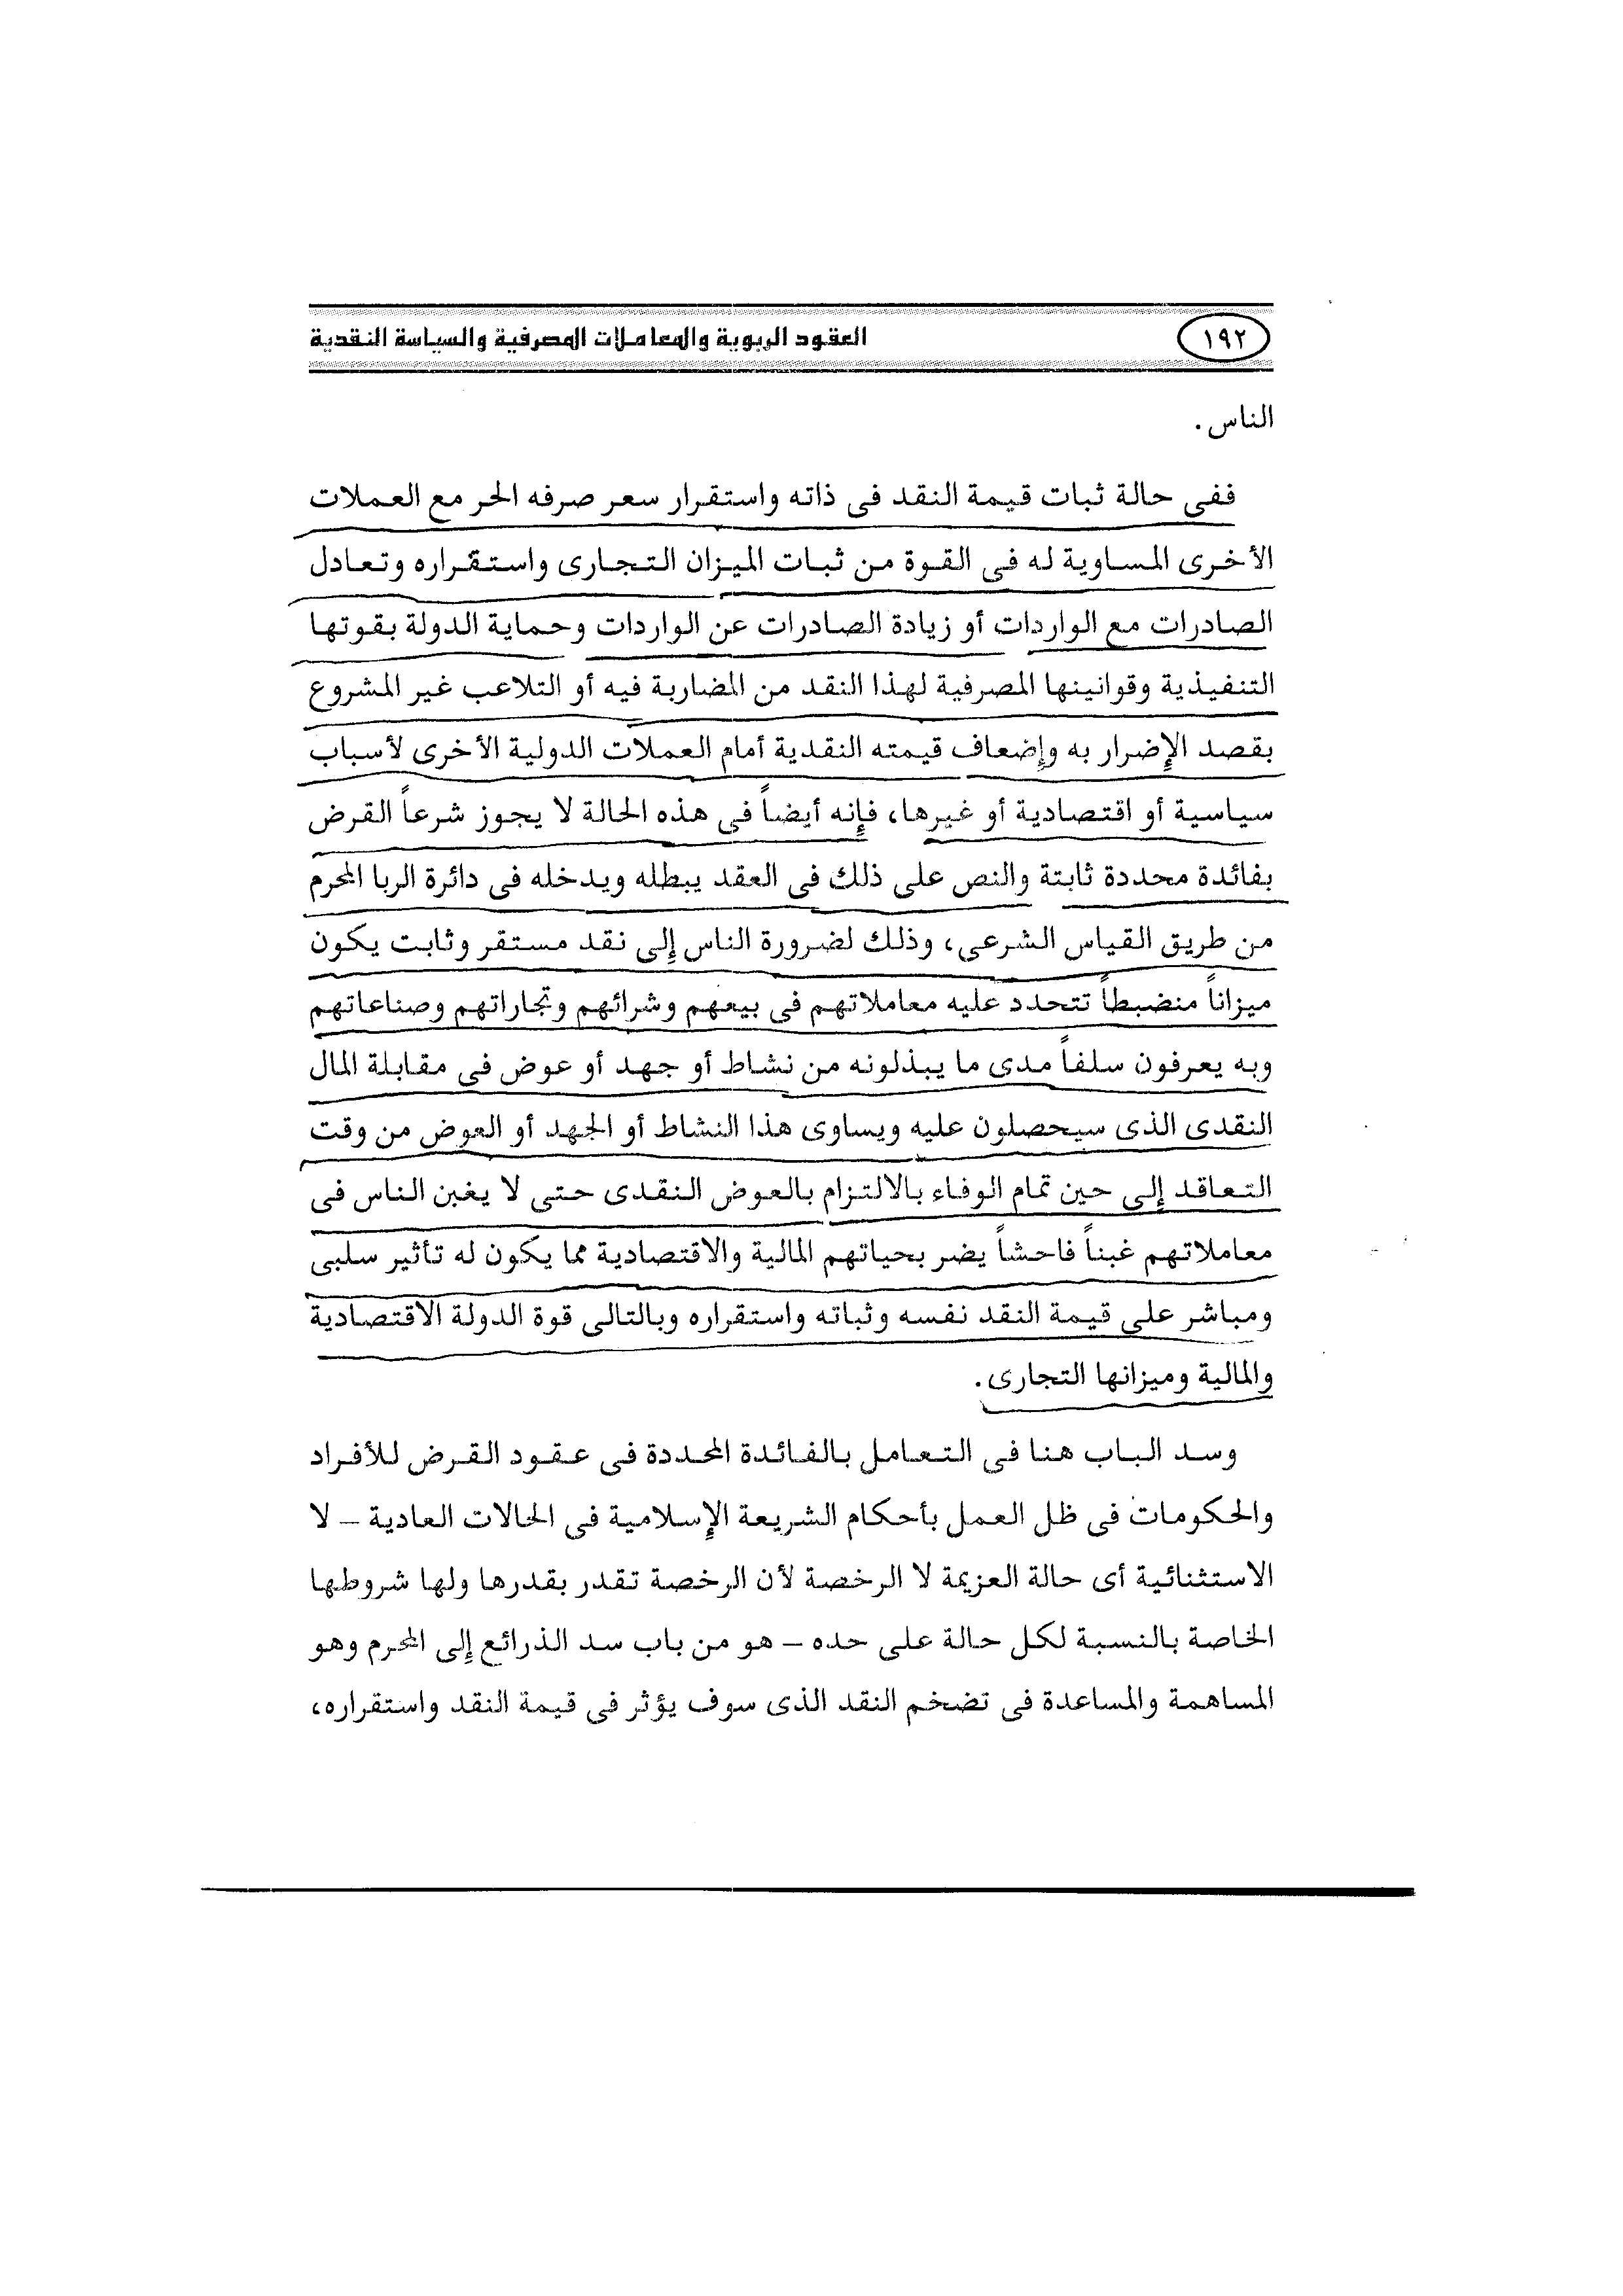 ١٩٢ العقود الربوية والمعاملات المصرفية والسياسة النقدية
الناس .
ففى حالة ثبات قيمة النقد فى ذاته واستقرار سعر صرفه الحر مع العملات
الأخرى المساوية له فى القوة من ثبات الميزان التجارى واستقراره وتعادل
الصادرات مع الواردات أو زيادة الصادرات عن الواردات وحماية الدولة بقوتها
التنفيذية وقوانينها المصرفية لهذا النقد من المضاربة فيه أو التلاعب غير المشروع
بقصد الإضرار به وإضعاف قيمته النقدية أمام العملات الدولية الأخرى لأسباب
سياسية أو اقتصادية أو غيرها، فإنه أيضاً فى هذه الحالة لا يجوز شرعاً القرض
بفائدة محددة ثابتة والنص على ذلك فى العقد يبطله ويدخله فى دائرة الربا المحرم
من طريق القياس الشرعى، وذلك لضرورة الناس إلى نقد مستقر وثابت يكون
ميزاناً منضبطاً تتحدد عليه معاملاتهم فى بيعهم وشرائهم وتجاراتهم وصناعاتهم
وبه يعرفون سلفاً مدى ما يبذلونه من نشاط أو جهد أو عوض فى مقابلة المال
النقدى الذى سيحصلون عليه ويساوى هذا النشاط أو الجهد أو العوض من وقت
التعاقد إلى حين تمام الوفاء بالالتزام بالعوض النقدى حتى لا يغبن الناس فى
معاملاتهم غبناً فاحشاً يضر بحياتهم المالية والاقتصادية مما يكون له تأثير سلبى
ومباشر على قيمة النقد نفسه وثباته واستقراره وبالتالى قوة الدولة الاقتصادية
والمالية وميزانها التجارى .
وسد الباب هنا فى التعامل بالفائدة المحددة فى عقود القرض للأفراد
والحكومات فى ظل العمل بأحكام الشريعة الإسلامية فى الحالات العادية – لا
الاستثنائية أى حالة العزيمة لا الرخصة لأن الرخصة تقدر بقدرها ولها شروطها
الخاصة بالنسبة لكل حالة على حده – هو من باب سد الذرائع إلى المحرم وهو
المساهمة والمساعدة فى تضخم النقد الذى سوف يؤثر فى قيمة النقد واستقراره،